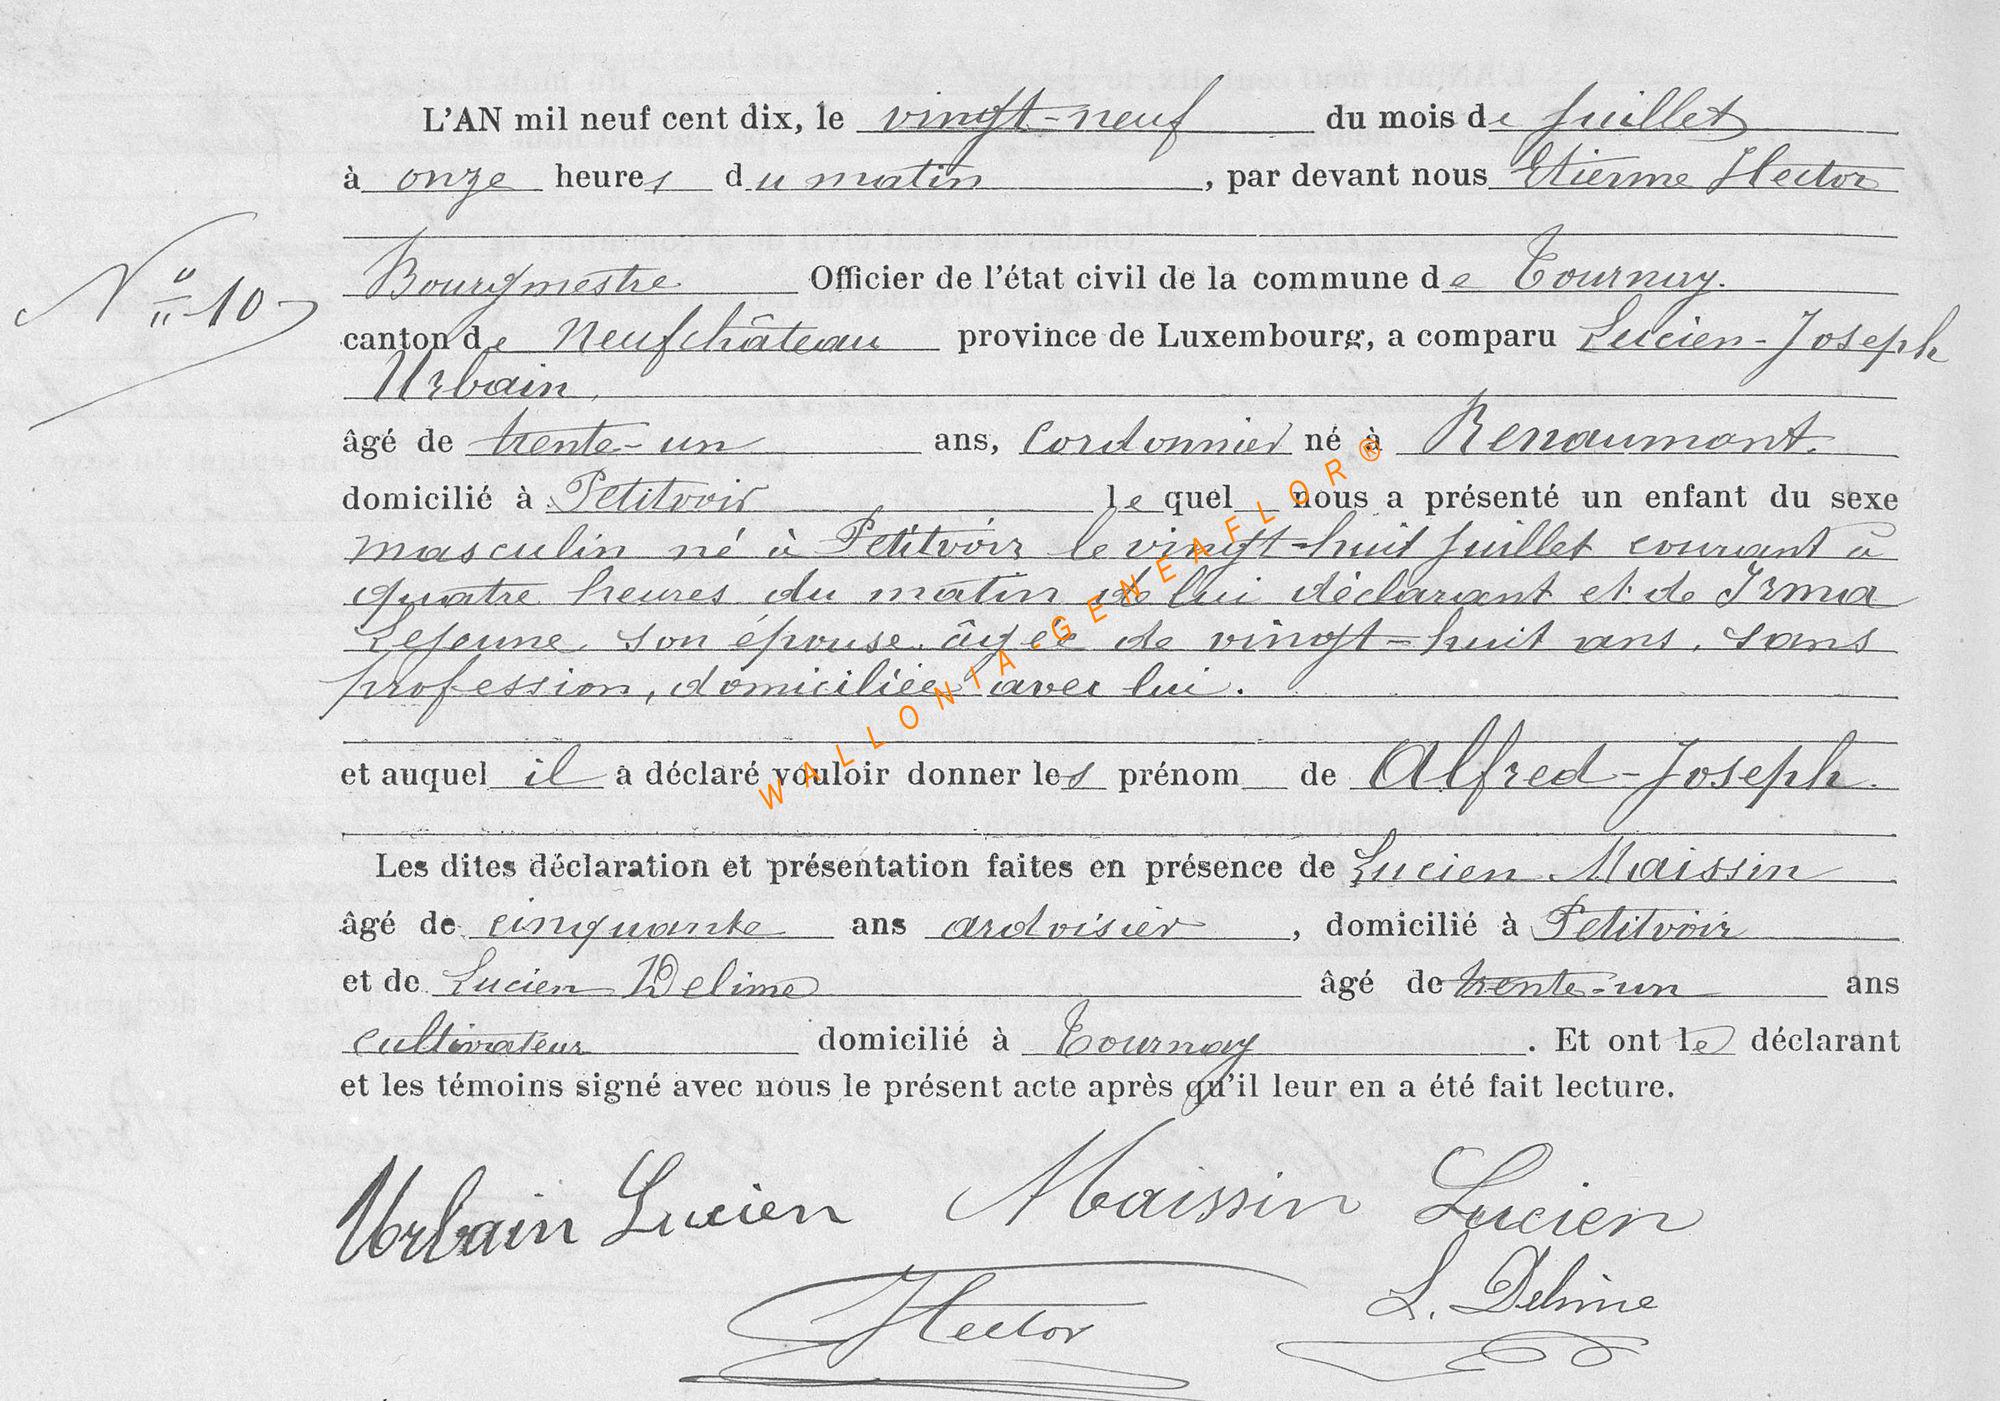 L'AN mil neuf cent dix, le vingt-neuf du mois de juillet
à onze heures du matin, par devant nous Etienne Hector
Bourgmestre Officier de l'état civil de la commune de Tournay.
N° 10
canton de Neufchâteau province de Luxembourg, a comparu Lucien-Joseph
Urbain,
âgé de trente-un ans, cordonnier né à Renaumont.
domicilié à Petitvoir lequel nous a présenté un enfant du sexe
masculin né à Petitvoir le vingt-huit juillet courant à
quatre heures du matin de lui déclarant et de Irma
Lejeune son épouse âgée de vingt-huit ans, sans
profession, domiciliée avec lui.
et auquel il a déclaré vouloir donner les prénom de Alfred-Joseph.
Les dites déclaration et présentation faites en présence de Lucien Maissin
âgé de cinquante ans ardoisier, domicilié à Petitvoir
et de Lucien Delime âgé de trente-un ans
cultivateur domicilié à Tournay. Et ont le déclarant
et les témoins signé avec nous le présent acte après qu'il leur en a été fait lecture.
Urbain Lucien Maissin Lucien
L. Delime
Hector
WALLONIA-GENEAFLOR®